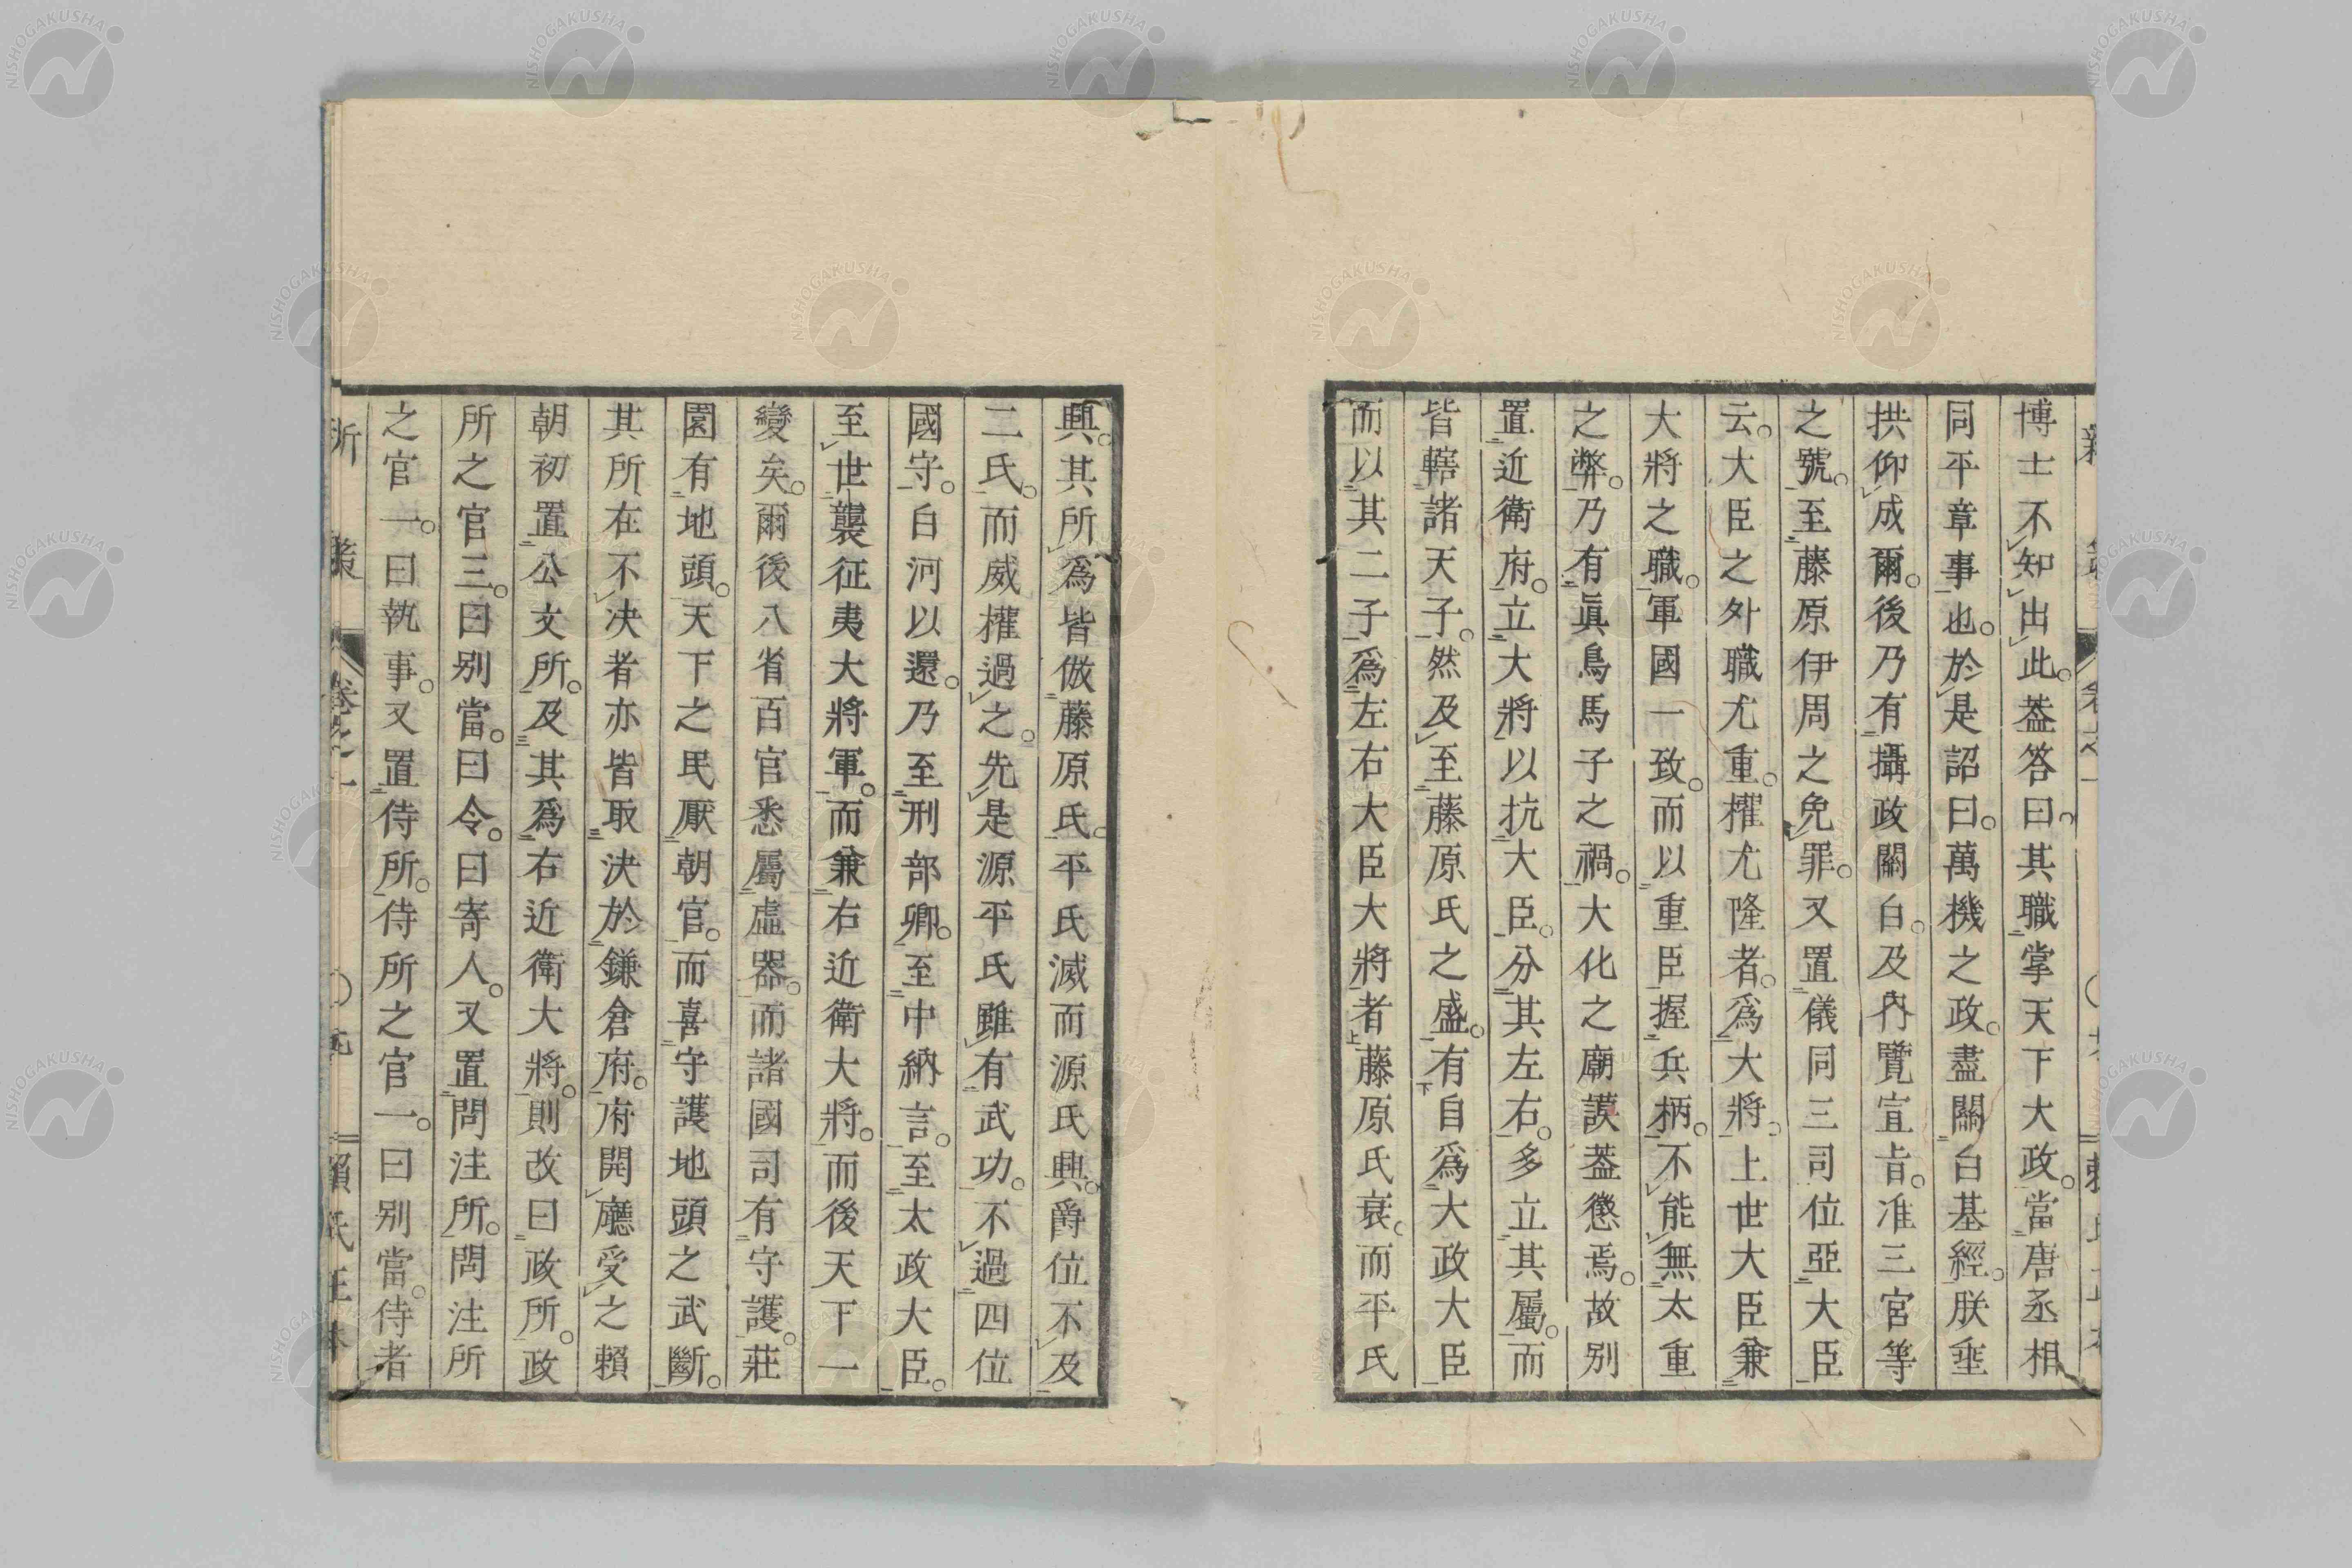 博士不知出此。葢答曰。其職掌天下大政。當唐丞相
同平章事也。於是詔曰。萬機之政。盡關白基經。朕垂
拱仰成爾。後乃有攝政關白。及內覽宣旨。准三宮等
之號。至藤原伊周之免罪。又置儀同三司位亞大臣
云。大臣之外職尤重。權尤隆者。爲大將。上世大臣兼
大將之職。軍國一致。而以重臣握兵柄。不能無太重
之弊。乃有眞鳥馬子之禍。大化之廟謨葢懲焉。故别
置近衛府。立大將以抗大臣。分其左右。多立其屬。而
皆轄諸天子。然及至藤原氏之盛。有自爲大政大臣
而以其二子爲左右大臣大將者。藤原氏衰。而平氏
興。其所爲皆倣藤原氏。平氏滅而源氏興。爵位不及
二氏。而威權過之。先是源平氏雖有武功。不過四位
國守。白河以還。乃至刑部卿。至中納言。至太政大臣。
至世襲征夷大將軍。而兼右近衛大將。而後天下一
變矣。爾後八省百官悉屬虛器。而諸國司有守護。莊
園有地頭。天下之民厭朝官。而喜守護地頭之武斷。
其所在不决者亦皆取決於鎌倉府。府開廳受之賴
朝初置公文所。及其爲右近衛大將。則改曰政所。政
所之官三。曰别當。曰令。曰寄人。又置問注所。問注所
之官一。曰執事。又置侍所。侍所之官一。曰别當。侍者
新 策 卷之一 賴氏正本